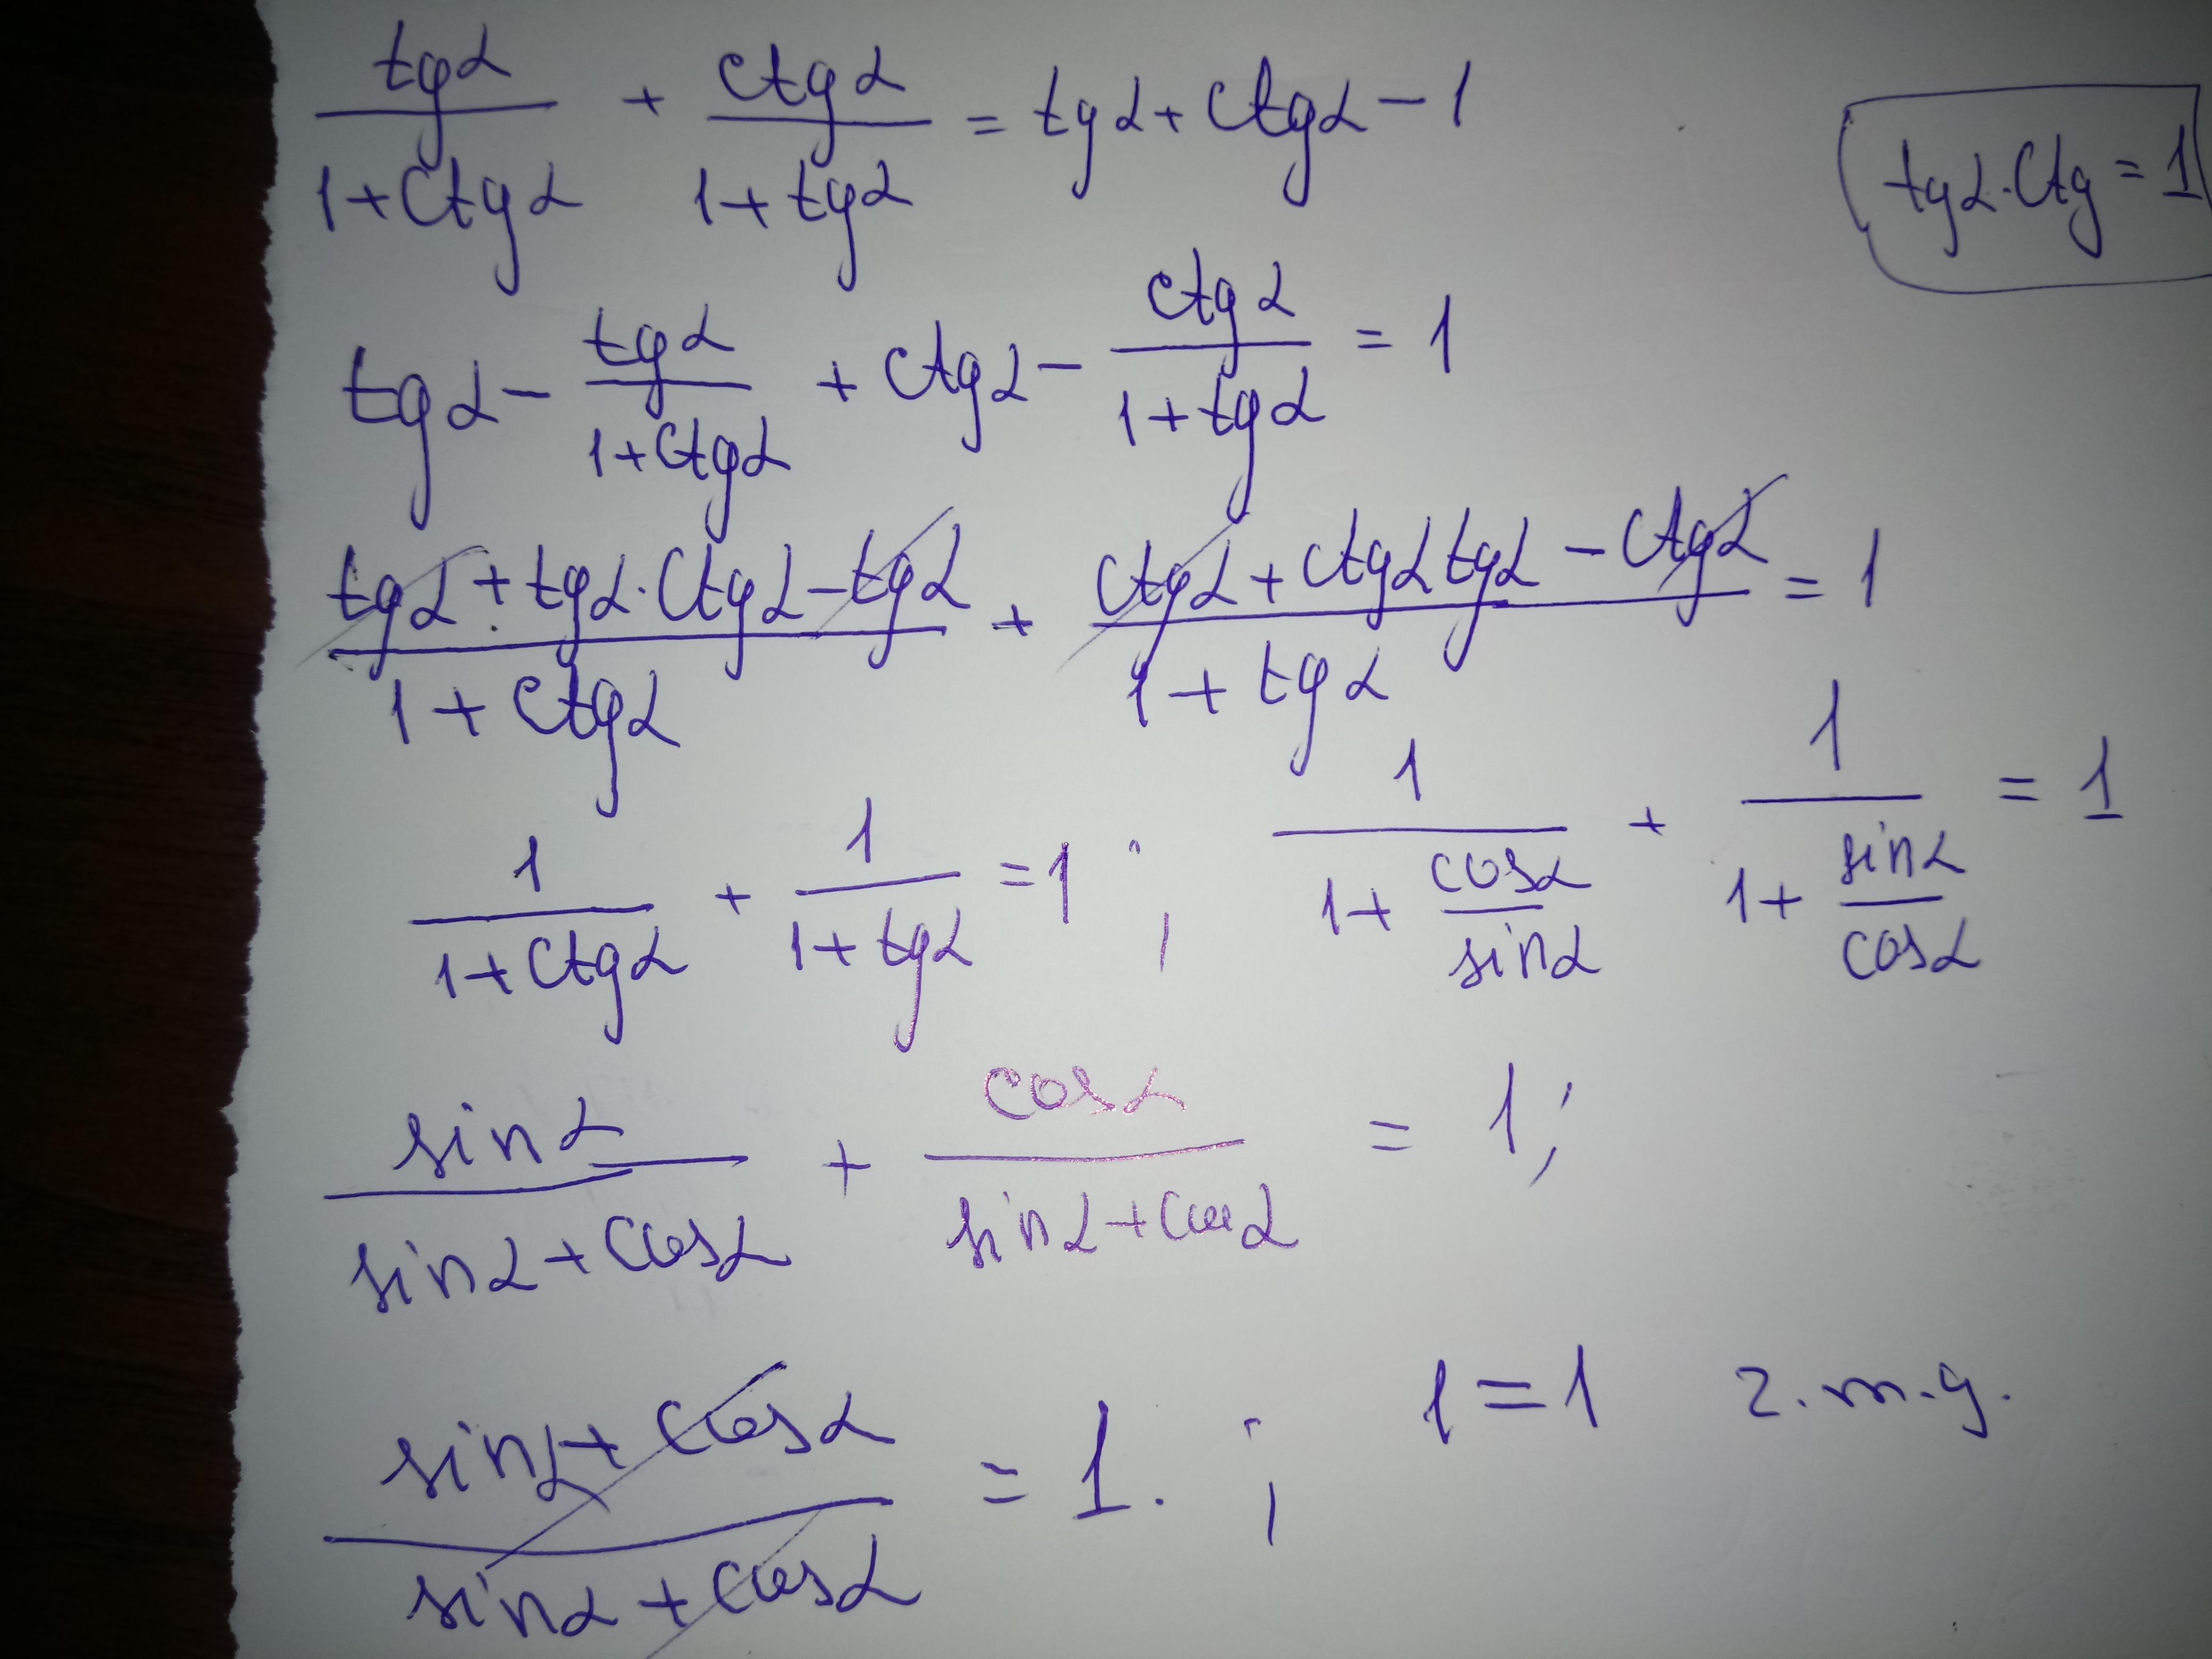 tgα/(1+ctgα) + ctgα/(1+tgα) = tgα + ctgα − 1
tgα·ctg = 1
tgα − tgα/(1+ctgα) + ctgα − ctgα/(1+tgα) = 1
(tgα + tgα·ctgα − tgα)/(1+ctgα) + (ctgα + ctgα tgα − ctgα)/(1+tgα) = 1
1/(1+ctgα) + 1/(1+tgα) = 1 ; 1/(1 + cosα/sinα) + 1/(1 + sinα/cosα) = 1
sinα/(sinα + cosα) + cosα/(sinα + cosα) = 1;
(sinα + cosα)/(sinα + cosα) = 1. ; 1 = 1 г.т.д.